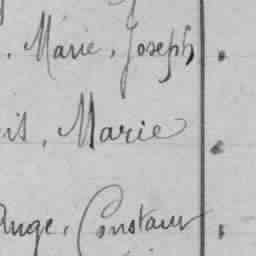 , Marie, Joseph
is, Marie
Ange, Constant